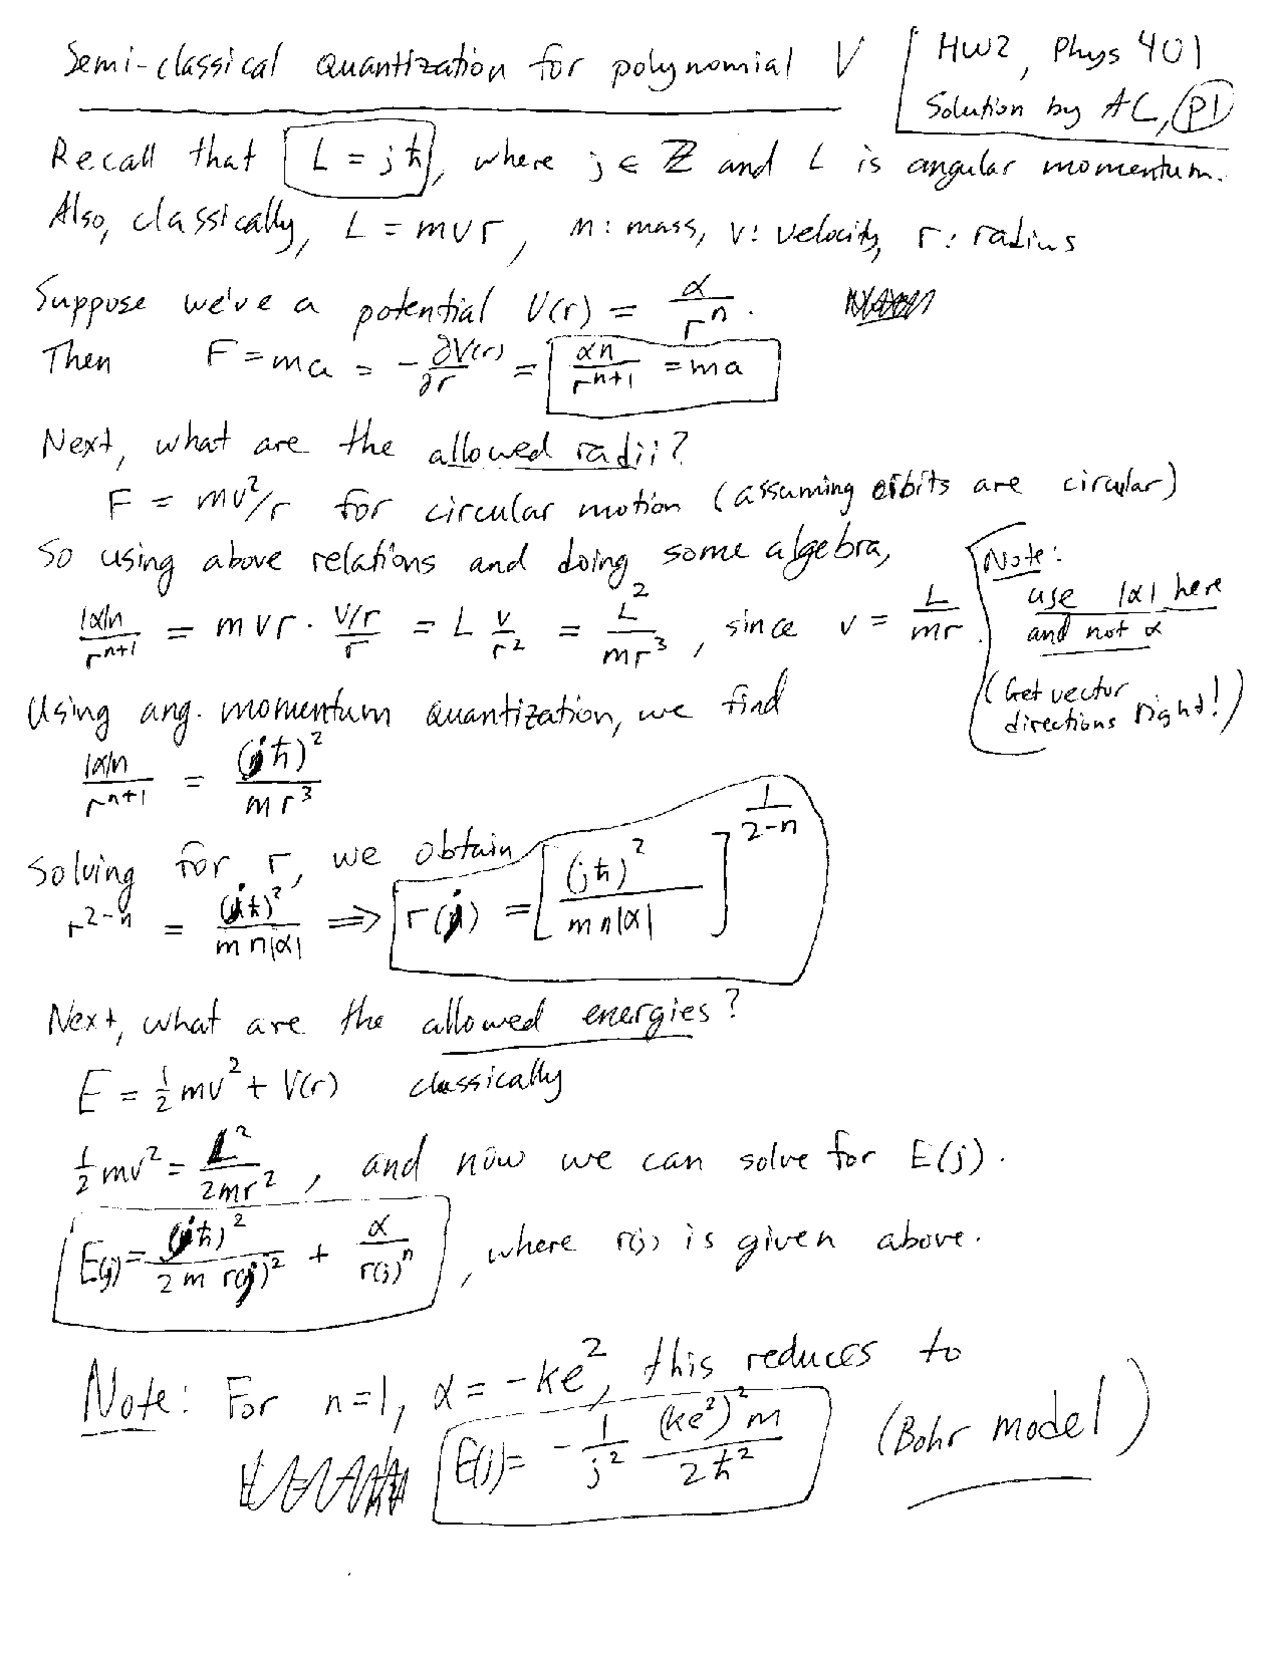 Semi-classical quantization for polynomial V
HW2, Phys 401
Solution by AC, p1
Recall that L = jħ, where j ∈ ℤ and L is angular momentum.
Also, classically, L = mvr, m: mass, v: velocity, r: radius
Suppose we've a potential V(r) = α/r^n.
Then F = ma = -∂V(r)/∂r = αn/r^(n+1) = ma
Next, what are the allowed radii?
F = mv²/r for circular motion (assuming orbits are circular)
So using above relations and doing some algebra,
|α|n/r^(n+1) = mvr · (v/r)/r = L v/r² = L²/(mr³), since v = L/(mr).
Note:
use |α| here
and not α
(Get vector
directions right!)
Using ang. momentum quantization, we find
|α|n/r^(n+1) = (jħ)²/(mr³)
Solving for r, we obtain
r^(2-n) = (jħ)²/(mn|α|) ⟹ r(j) = [(jħ)²/(mn|α|)]^(1/(2-n))
Next, what are the allowed energies?
E = ½mv² + V(r) classically
½mv² = L²/(2mr²), and now we can solve for E(j).
E(j) = (jħ)²/(2m r(j)²) + α/r(j)^n, where r(j) is given above.
Note: For n=1, α = -ke², this reduces to
E(j) = -1/j² (ke²)²m/(2ħ²) (Bohr model)